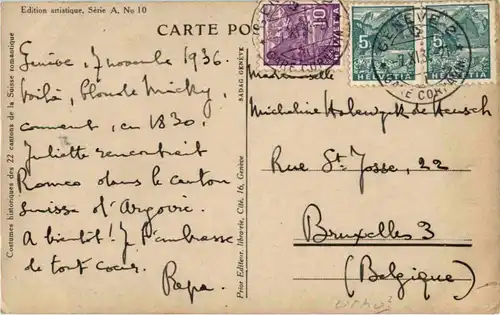 Edition artistique, Série A, No 10
CARTE POS
Genève, 7 novembre 1936.
Voilà, blonde Micky,
comment, en 1830,
Juliette rencontrait
Romeo dans le canton
suisse d'Argovie.
A bientôt! Je t'embrasse
de tout coeur.
Papa.
Costumes historiques des 22 cantons de la Suisse romantique
SADAG GENÈVE
Prior Editeur, librairie, Cité, 16, Genève
10
HELVETIA
5
HELVETIA
5
HELVETIA
GENÈVE 2
GARE CORNAVIN
Mademoiselle
Micheline
Rue St-Josse, 22
Bruxelles 3
(Belgique)